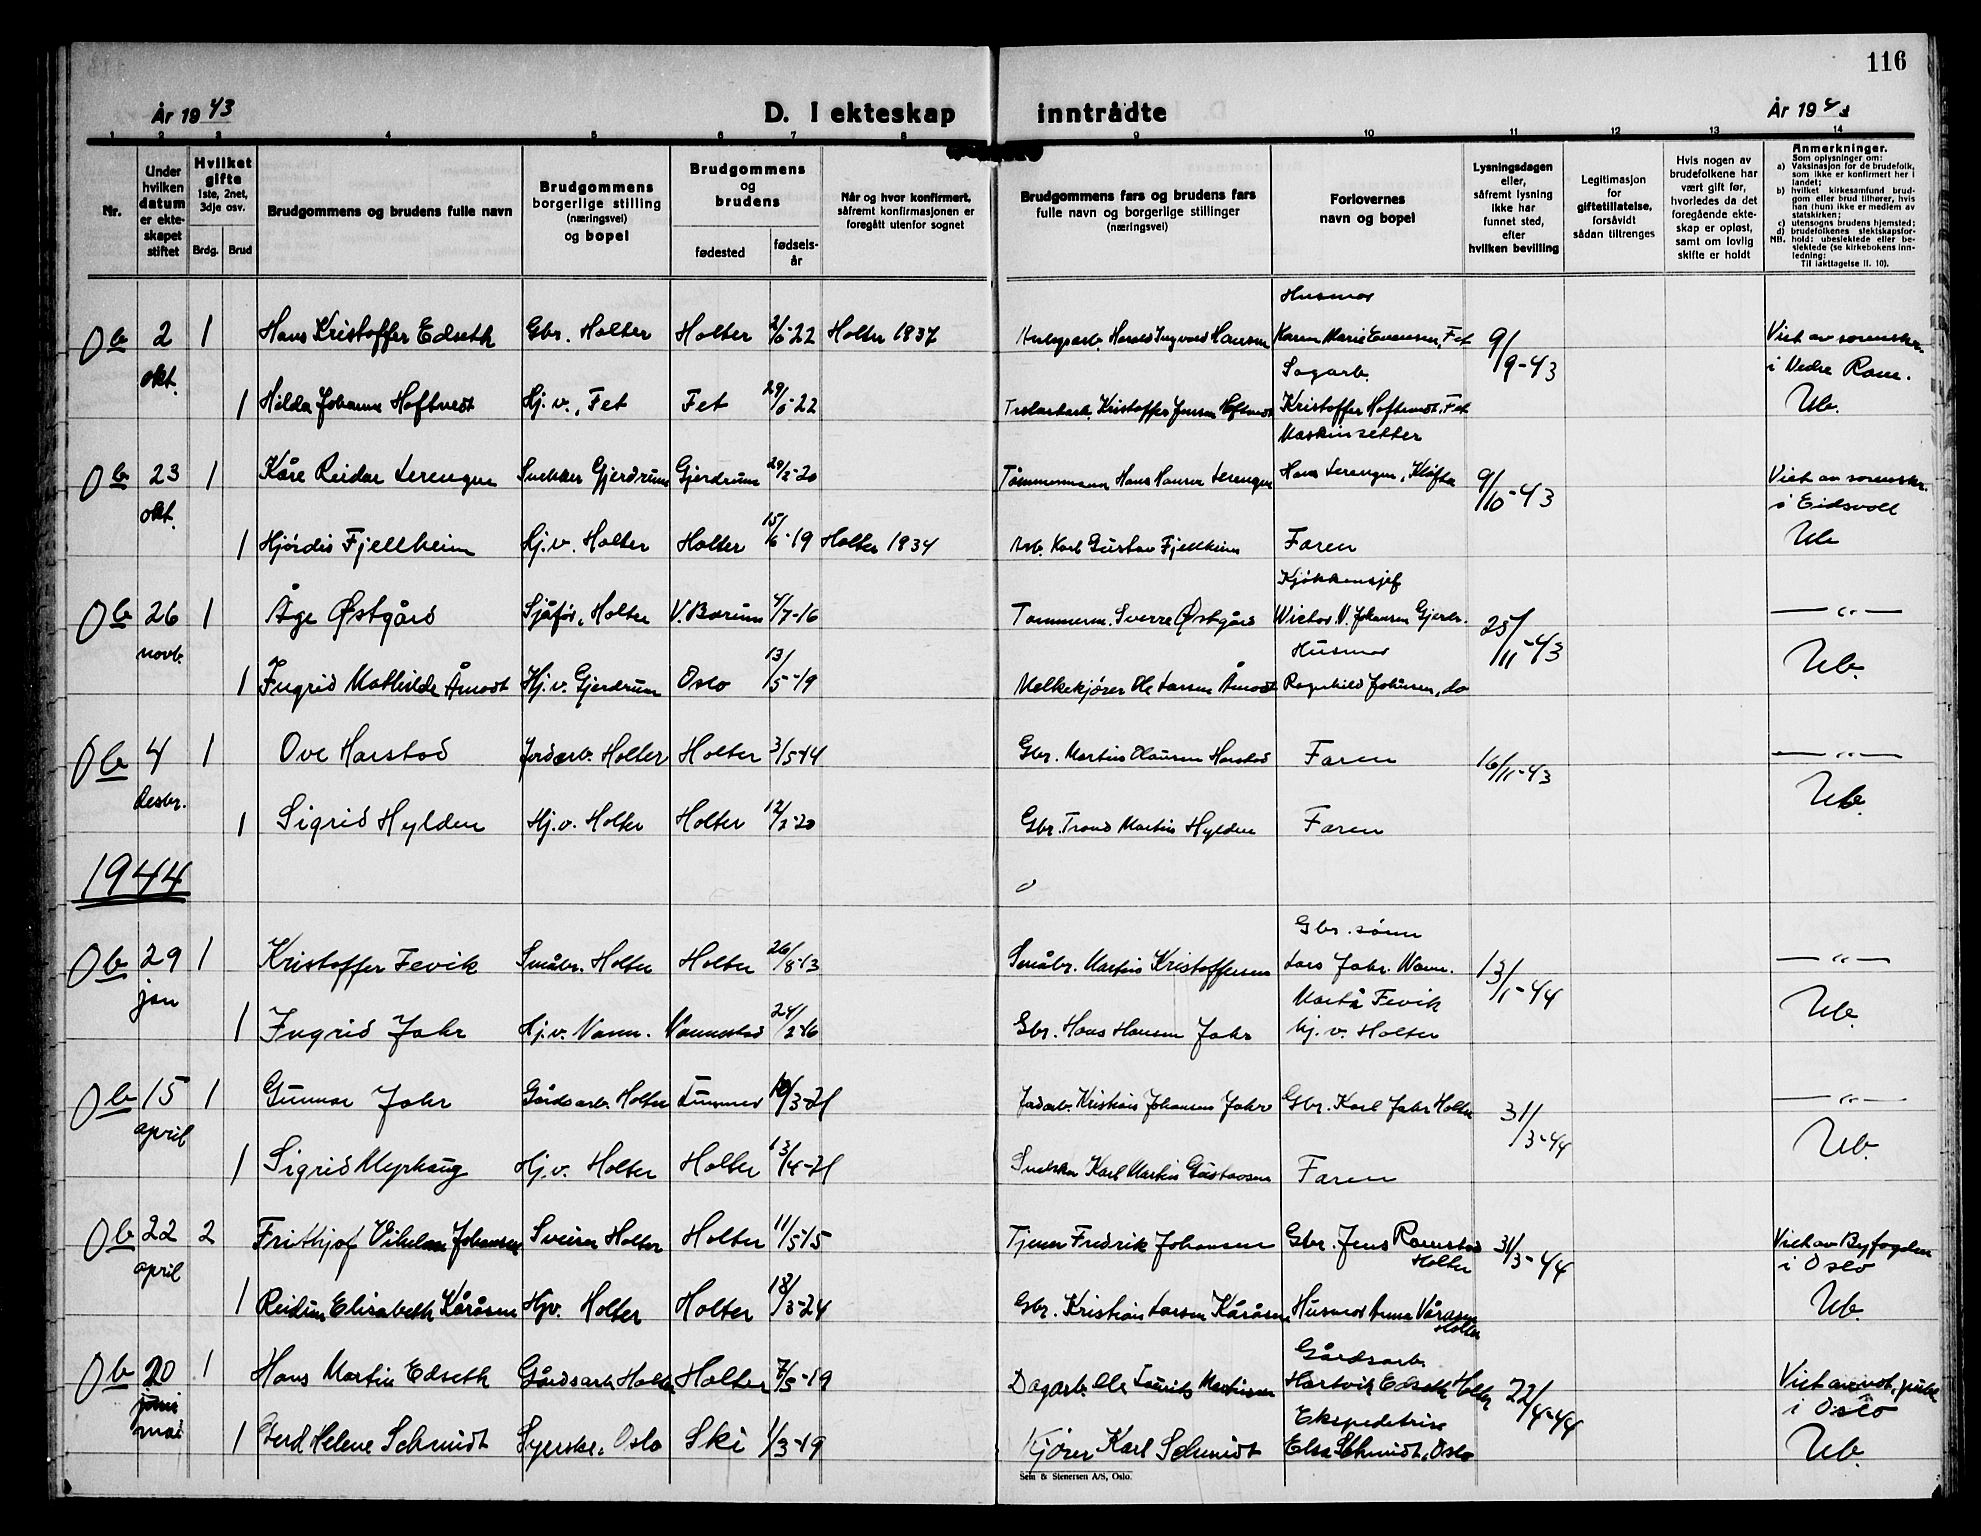 116
År 1943 D. I ekteskap inntrådte År 1943
1 2 3 4 5 6 7 8 9 10 11 12 13 14
Nr.
Under hvilken datum er ekteskapet stiftet
Hvilket gifte 1ste, 2net, 3dje osv.
Brdg. Brud
Brudgommens og brudens fulle navn
Brudgommens borgerlige stilling (næringsvei) og bopel
Brudgommens og brudens
fødested fødselsår
Når og hvor konfirmert, såfremt konfirmasjonen er foregått utenfor sognet
Brudgommens fars og brudens fars fulle navn og borgerlige stillinger (næringsvei)
Forlovernes navn og bopel
Lysningsdagen eller, såfremt lysning ikke har funnet sted, efter hvilken bevilling
Legitimasjon for giftetillatelse, forsåvidt sådan tiltrenges
Hvis nogen av brudefolkene har vært gift før, hvorledes da det foregående ekteskap er opløst, samt om lovlig skifte er holdt
Anmerkninger.
Som oplysninger om:
a) Vaksinasjon for de brudefolk, som ikke er konfirmert her i landet;
b) hvilket kirkesamfund brudgom eller brud tilhører, hvis han (hun) ikke er medlem av statskirken;
c) utensogns brudens hjemsted;
d) brudefolkenes slektskapsforhold: ubeslektede eller beslektede (se kirkebokens innledning:
NB. Til iakttagelse II. 10).
Husmor
Ob 2 1 Hans Kristoffer Edseth Gbr. Holter Holter 22 Holter 1937 Harald Ingvard Hansen Karen Marie Evensen, Fet 9/9-43 Viet av sorenskr.
okt. Sagarb. i Nedre Rom.
1 Hilda Johanne Hoftvedt Hj. v., Fet Fet 29/6-22 Kristoffer Jensen Hoftvedt Kristoffer Hoftvedt, Fet Ub.
Maskinsetter
Ob 23 1 Kåre Reidar Lerengen Snekker Gjerdrum Gjerdrum 29/2-20 Tømmermann Hans Hansen Lerengen Hans Lerengen, Kløfta 9/10-43 Viet av sorenskr.
okt. i Eidsvoll
1 Hjørdis Fjellheim Hj. v. Holter Holter 15/6-19 Holter 1934 Arb. Karl Gustav Fjellheim Faren Ub
Kjøkkensjef
Ob 26 1 Åge Østgård Sjåfør, Holter V. Bærum 4/7-16 Tømmerm. Sverre Østgård Wictor V. Johansen Gjerdr. 25/11-43 — " —
novb. Husmor
1 Ingrid Mathilde Åmodt Hj. v. Gjerdrum Oslo 13/5-19 Melkekjører Ole Larsen Åmodt Ragnhild Johansen, do Ub.
Ob 4 1 Ove Harstad Jordarb. Holter Holter 3/5-14 Gbr. Martin Olausen Harstad Faren 16/11-43 — " —
desbr.
1 Sigrid Hylden Hj. v. Holter Holter 12/2-20 Gbr. Trond Martin Hylden Faren Ub.
1944
Gbr. sønn
Ob 29 1 Kristoffer Fevik Småbr. Holter Holter 26/8-13 Småbr. Martin Kristoffersen Lars Jahr. Nann. 13/1-44 — " —
jan Marta Fevik
1 Ingrid Jahr Hj. v. Nann. Nannestad 24/2-16 Gbr. Hans Hansen Jahr hj. v. Holter Ub.
Ob 15 1 Gunnar Jahr Gårdsarb. Holter 10/3-21 Jordarb. Kristian Johansen Jahr Gbr. Karl Jahr Holter 31/3-44 — " —
april
1 Sigrid Myrhaug Hj. v. Holter Holter 13/4-21 Snekker Karl Martin Gustavsen Faren Ub.
Ob 22 2 Frithjof Vilhelm Johansen Sveiser Holter Holter 11/5-15 Tjener Fredrik Johansen Gbr. Jens Ramstad 31/3-44 Viet av Byfogden
april Holter i Oslo
1 Reidun Elisabeth Kåråsen Hjv. Holter Holter 18/3-24 Gbr. Kristian Larsen Kåråsen Husmor Anna Våråsen Ub.
Holter
Gårdsarb.
Ob 20 1 Hans Martin Edseth Gårdsarb Holter Holter 7/5-19 Dagarb. Ole Laurits Martinsen Hartvik Edseth Holter 22/4-44 Viet av not. publ.
mai Ekspeditrise i Oslo
1 Gerd Helene Schmidt Syerske, Oslo Ski 1/3-19 Kjører Karl Schmidt Elsa Schmidt, Oslo Ub.
Sem & Stenersen A/S, Oslo.